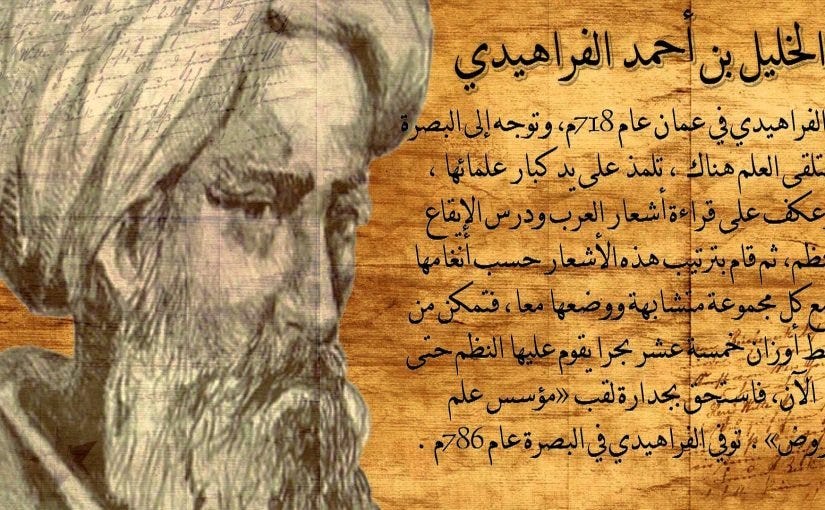 الخليل بن أحمد الفراهيدي
الفراهيدي في عمان عام 718م، وتوجه إلى البصرة
تلقى العلم هناك ، تتلمذ على يد كبار علمائها ،
عكف على قراءة أشعار العرب ودرس الإيقاع
ظم، ثم قام بترتيب هذه الأشعار حسب أنغامها
مع كل مجموعة متشابهة ووضعها معا ، فتمكن من
ط أوزان خمسة عشر بحرا يقوم عليها النظم حتى
الآن، فاستحق بجدارة لقب «مؤسس علم
روض» . توفي الفراهيدي في البصرة عام 786م .